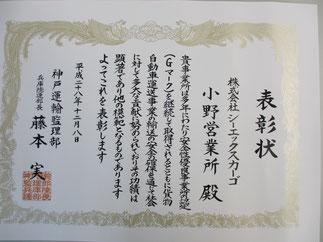 表彰状
株式会社シーエックスカーゴ
小野営業所 殿
貴事業所は多年にわたり安全性優良事業所認定
(Gマーク)を継続して取得されるとともに貨物
自動車運送事業の輸送の安全の確保を通じて社会
に対して多大な貢献に努められておりその功績は
顕著であり他の模範となるものであります
よってこれを表彰します
平成二十八年十二月八日
神戸運輸監理部
兵庫陸運部長 藤本 実